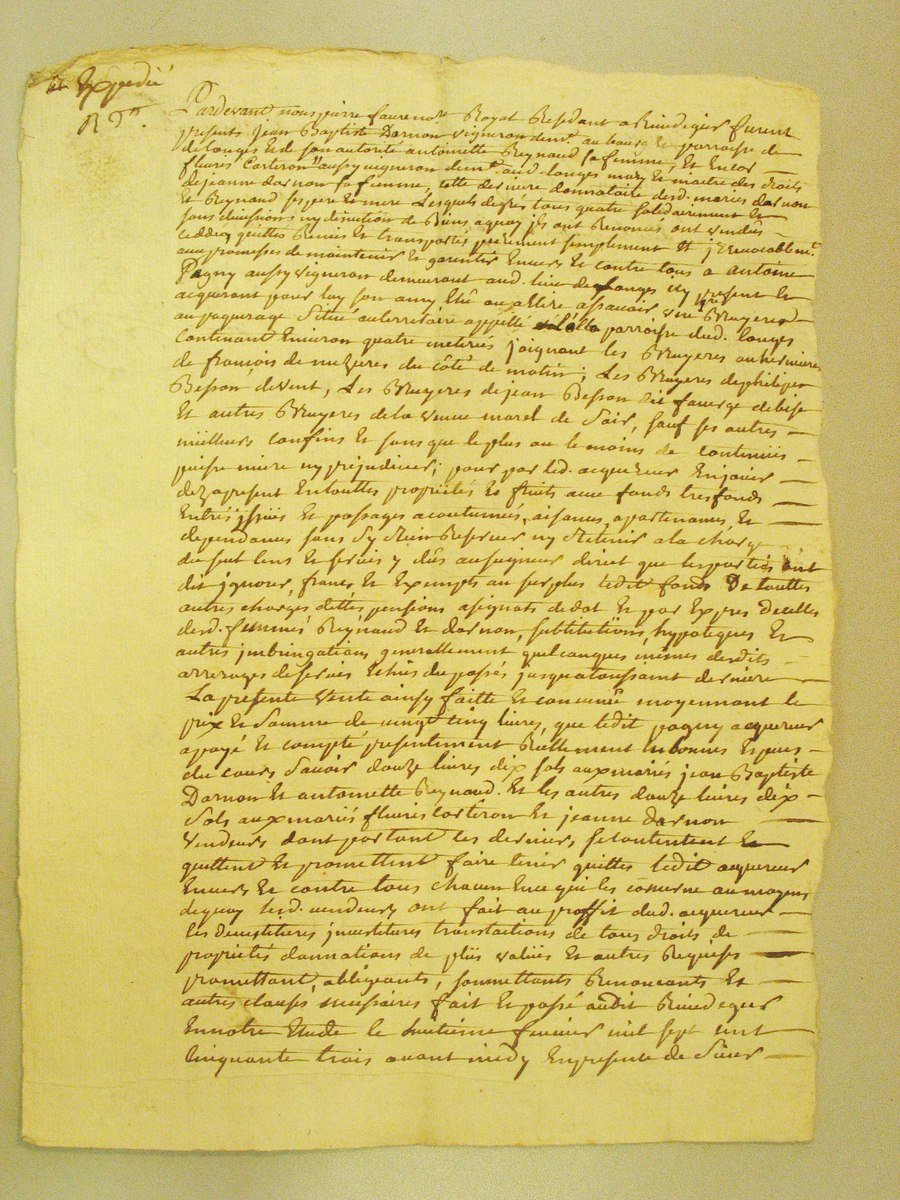 Expedié
Pardevant nous pierre faure no.re Royal Residant a Rivedegier furent
presents jean Baptiste Darnon vigneron demt. au bourg et parroisse de
de longes et de son autorité antoinette Reynaud sa femme, Et Encor
fleuris Corteron aussy vigneron demt. aud. longes mary et maitre des droits
de jeanne darnon sa femme, cette derniere donnataire desd. mariés darnon
Et Reynaud ses pere Et mere Lesquels degrés tous quatre solidairement Et
sans divissions ny discution de Biens, aquoy ils ont Renoncés ont vendus
ceddés quittes Remis Et transportes purement simplement Et jrrevocablemt.
aux promesses de maintenir Et garentir Envers Et contre tous a antoine
Pagny aussy vigneron demeurant aud. lieu de Longes icy present Et
acquerant pour luy son amy Elû ou a Elire assavoir, une Bruyeres
au paquerage Situé au terretoire appellé parroisse dud. longes
Contenant Environ quatre meterées joignant les Bruyeres
de francois de muzieres du côté de matin; Les Bruyeres de philipes
Besson de vent, Les Bruyeres de jean Besson dit faverge de bise
Et autres Bruyeres de la veuve marel de Soir, sauf ses autres
meilleurs confins Et sans que le plus ou le moins de contenüe
puisse nuire ny prejudicier; pour par led. acquereur En jouir
dezapresent En touttes proprietés Et fruits aux fonds tres fonds
Entrés jssües Et passages acoutumés, aisances, apartenances, Et
dependances sans S'y Rien Reserver ny Retenir a la charge
du seul cens Et servis y dûs au seigneur direct que les parties ont
dit jgnorer, francs Et Exempts au surplus ledit fonds De touttes
autres charges dettes pensions assignats de dot Et par Expres De celles
desd. femmes Reynaud Et darnon, subtitutions, hypoteques Et
autres jmbringations generallement quelconques mêmes desdits
arrerages de servis Echus du passés jusqua toussaint derniere
La presente vente ainsy faitte Et convenüe moyennant le
prix Et Somme de vingt cinq livres, que ledit pagny acquereur
apayé Et compté presentement Réellement En bonnes Especes
du cours Savoir douze livres dix sols aux mariés jean Baptiste
Darnon Et antoinette Reynaud. Et les autres douze livres dix
Sols aux mariés fleuris Corteron Et jeanne darnon
Vendeurs dont partant les derniers, se contentent Et
quittent Et promettent faire tenir quittes ledit acquereur
Envers Et contre tous chacun En ce qui les concerne au moyens
dequoy lesd. vendeurs ont fait au proffit dud. acquereur
les demettitures jnvestitures translactions de tous droits, de
proprietés donnations de plus values Et autres Requises
promettant, obligeants, soumettants Renoncants Et
autres clauses necessaires fait Et passé audit Rivedegier
En notre Etude le huitieme fevrier mil sept cent
Cinquante trois avant midy En presence de Sieur